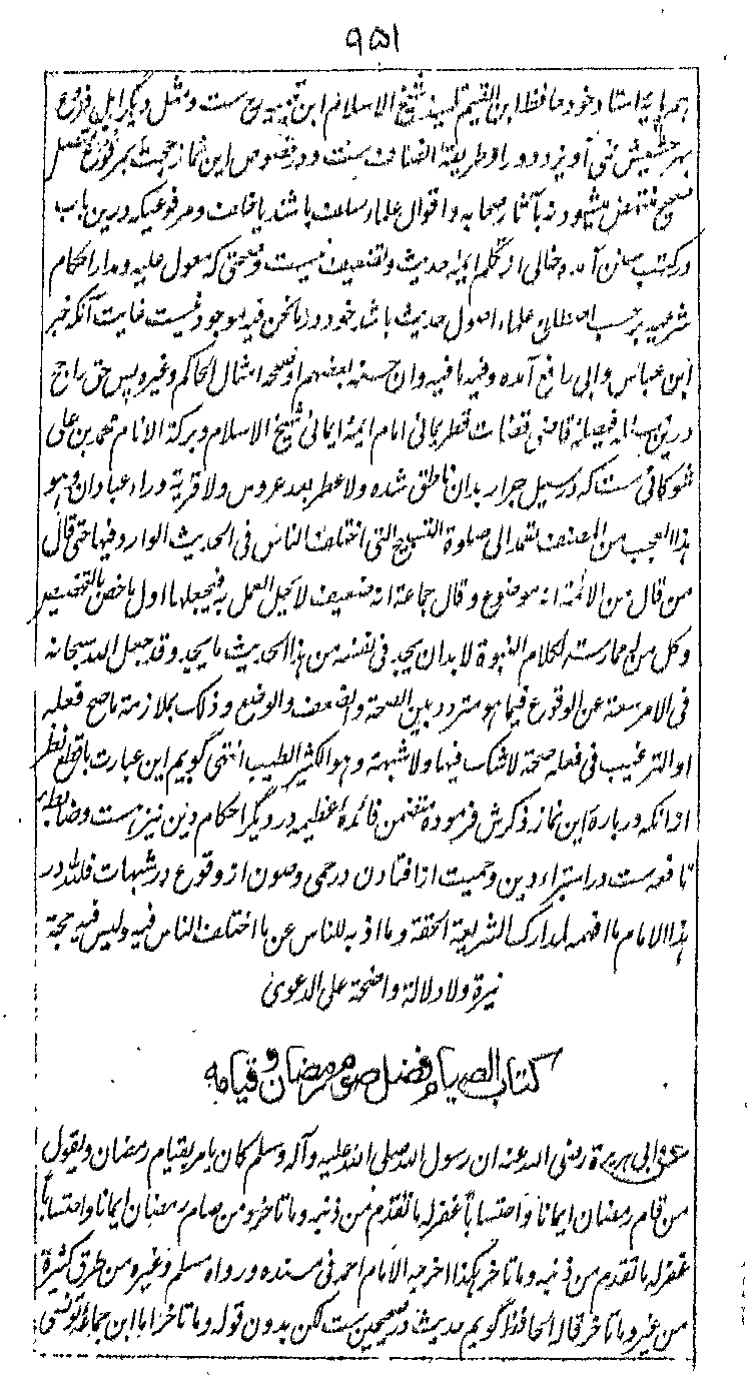 ۹۵۱
همپایهٔ استاد خود حافظ ابن القیم تلمیذ شیخ الاسلام ابن تیمیه ست و مثل دیگر اہل فروع
بہر حشیش نمی آویزد و در او طریقهٔ انصاف ست و در خصوص این نماز حجت بمرفوع متصل
صحیح منتهض میشود نه بآثار صحابه و اقوال علما سلف باشند یا خلف و مرفوعیکه درین باب
در کتب سنن آمده خالی از تکلم ایمهٔ حدیث و تضعیف نیست و صحتی که معول علیه و مدار احکام
شرعیه بر حسب اصطلاح علماء اصول حدیث باشد خود در ما نحن فیه موجود نیست غایت آنکه خبر
ابن عباس و ابی رافع آمده و فیه ما فیه و ان حسنه بعضهم او صححه امثال الحاکم و غیره پس حق راجح
درین باب فیصلهٔ قاضی قضات قطر یمانی امام ایمهٔ ایمانی شیخ الاسلام و برکة الانام محمد بن علی
شوکانی ست که در سیل جرار بدان ناطق شده و لا عطر بعد عروس و لا قریة وراء عبادان و هو
هذا العجب من المصنف تعمد الی صلوة التسبیح التی اختلف الناس فی الحدیث الوارد فیها حتی قال
من قال من الائمة انه موضوع و قال جماعة انه ضعیف لا یحل العمل به فیجعلها اول ما خص بالتخصیص
و کل من له ممارسة لکلام النبوة لا بد ان یجد فی نفسه من هذا الحدیث ما یجد و قد جعل الله سبحانه
فی الامر سعة عن الوقوع فیما هو متردد بین الصحة و الضعف و الوضع و ذلک بملازمة ما صح فعله
او الترغیب فی فعله صحة لا شک فیها و لا شبهة و هو الکثیر الطیب انتهی گویم این عبارت باقطع نظر
از انکه دربارهٔ این نماز ذکرش فرموده متضمن فائدهٔ عظیمه در دیگر احکام دین نیز ہست و ضابطهٔ
نافعه ست در استبراء دین و حمیت از افتادن در حمی و صون از وقوع در شبهات فلله در
هذا الامام ما افهمه لمدارک الشریعة الحقة و ما اذبه للناس عن ما اختلف الناس فیه و لیس فیه حجة
نیرة و لا دلالة واضحة علی الدعوی
کتاب الصیام فضل صوم رمضان و قیامه
عن ابی هریرة رضی الله عنه ان رسول الله صلی الله علیه و آله و سلم کان یامر بقیام رمضان و یقول
من قام رمضان ایمانا و احتسابا غفر له ما تقدم من ذنبه و ما تاخر و من صام رمضان ایمانا و احتسابا
غفر له ما تقدم من ذنبه و ما تاخر هکذا اخرجه الامام احمد فی مسنده و رواه مسلم و غیره من طرق کثیرة
من غیر و ما تاخر قاله الحافظ گویم حدیث در صحیحین ست لکن بدون قوله و ما تاخر اما ابن جماعه تونسی